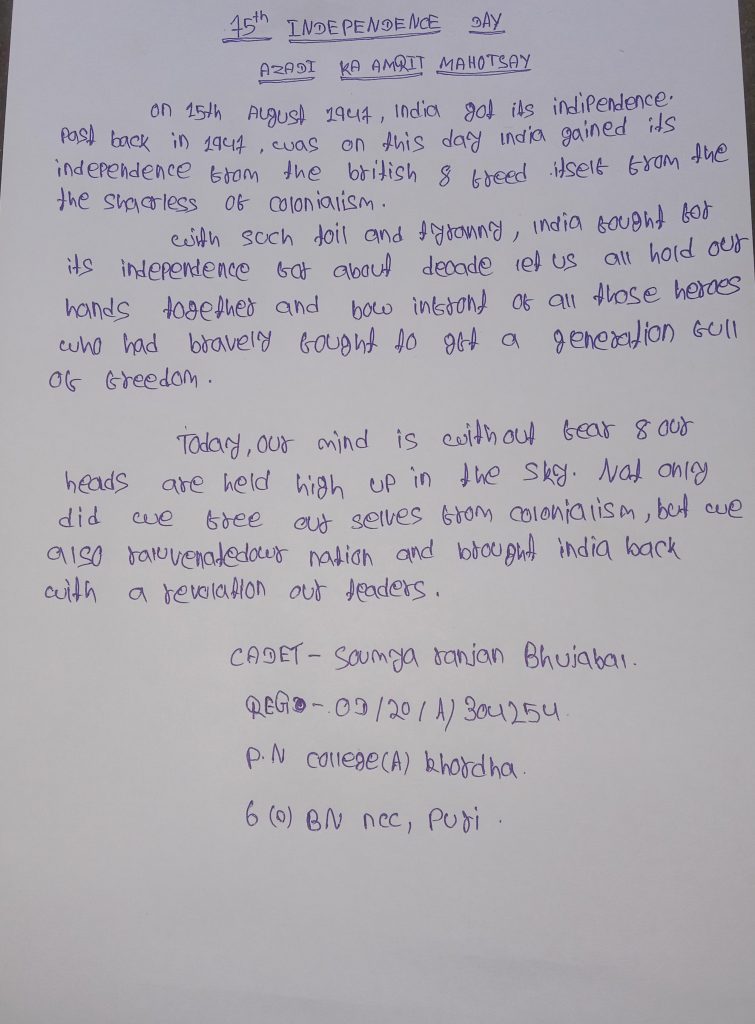 75th INDEPENDENCE DAY
AZADI KA AMRIT MAHOTSAV
on 15th August 1947, india got its indipendence.
Past back in 1947, was on this day india gained its
independence from the british & freed itself from the
the shacrless of colonialism.
with such toil and tyranny, india fought for
its independence for about decade let us all hold our
hands together and bow infront of all those heroes
who had bravely fought to get a generation full
of freedom.
Today, our mind is without fear & our
heads are held high up in the sky. Not only
did we free our selves from colonialism, but we
also raiuvenatedour nation and brought india back
with a revolation our leaders.
CADET - Soumya ranjan Bhujabal.
REGD - OD/20/A/304254
P.N college(A) khordha.
6 (o) BN ncc, puri.